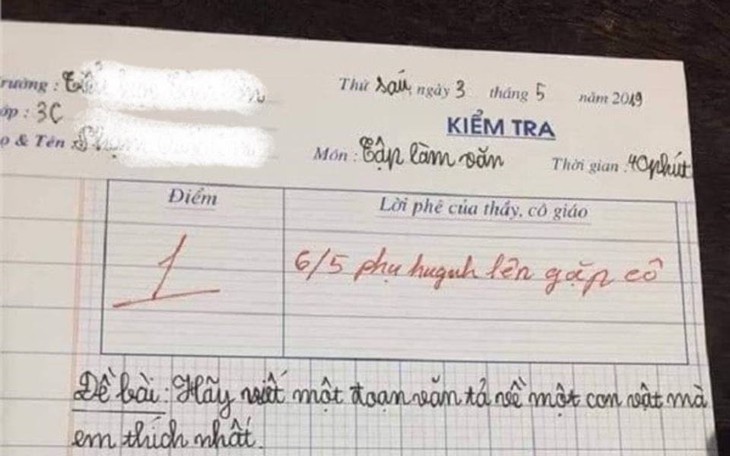 Trường :
Thứ sáu, ngày 3 tháng 5 năm 2019
Lớp : 3C
KIỂM TRA
Họ & Tên
Môn : Tập làm văn
Thời gian : 40 phút
Điểm
Lời phê của thầy, cô giáo
1
6/5 phụ huynh lên gặp cô
Đề bài : Hãy viết một đoạn văn tả về một con vật mà
em thích nhất.